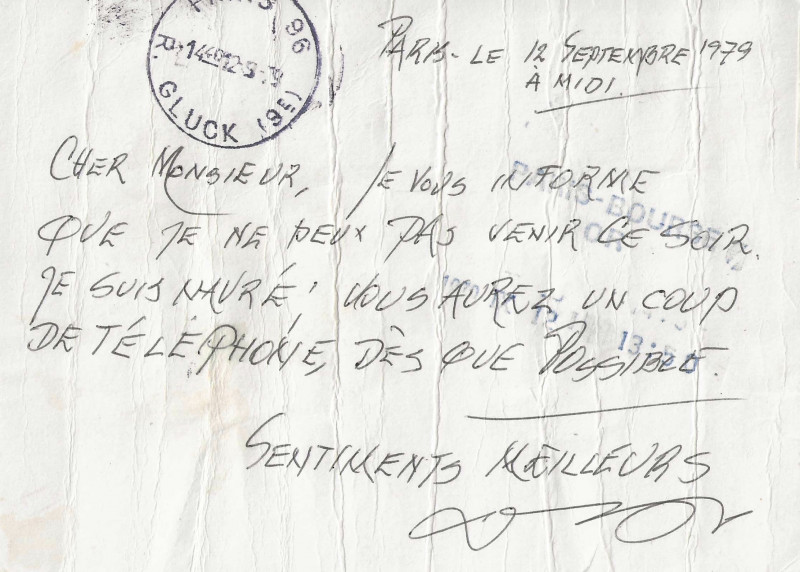 PARIS 96
R. GLUCK (9E)
PARIS - LE 12 SEPTEMBRE 1979
À MIDI.
CHER MONSIEUR, JE VOUS INFORME
QUE JE NE PEUX PAS VENIR CE SOIR.
JE SUIS NAVRÉ! VOUS AUREZ UN COUP
DE TÉLÉPHONE, DÈS QUE POSSIBLE.
SENTIMENTS MEILLEURS
PARIS-BOURSE